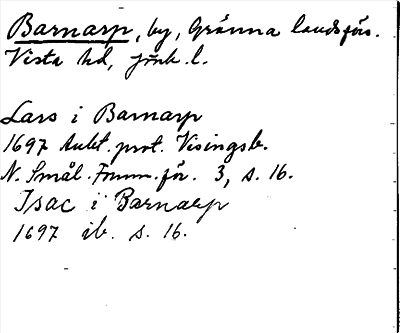 Barnarp, by, Gränna landsförs.
Vista hd, Jönk. l.
Lars i Barnarp
1697 Aukt. prot. Visingsb.
N. Smål. Fornm. för. 3, s. 16.
Isac i Barnarp
1697 ib. s. 16.